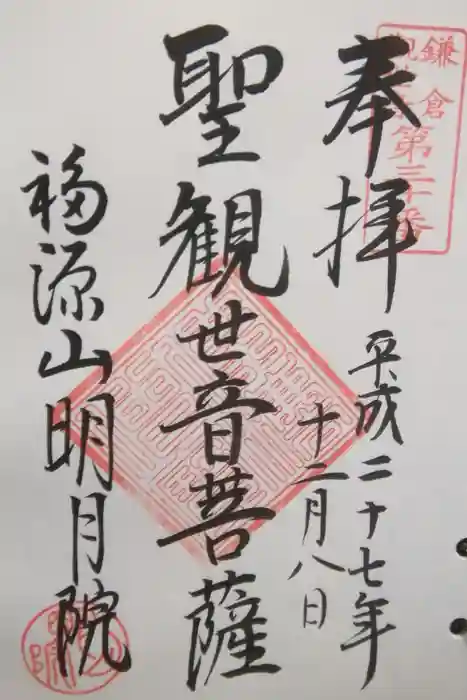 鎌倉
観音
第三十番
奉拝
平成二十七年
十二月八日
聖観世音菩薩
福源山明月院